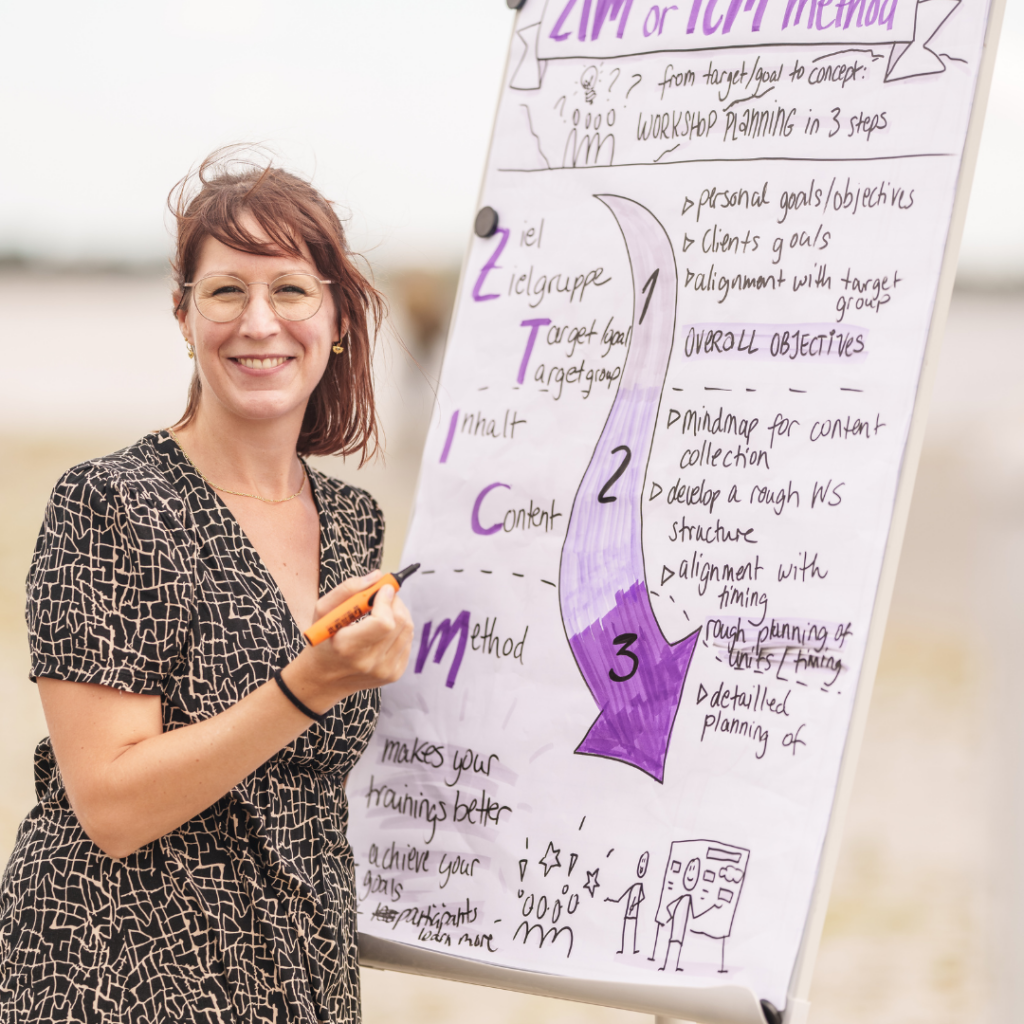 ZIM or TCM method
from target/goal to concept:
WORKSHOP PLANNING in 3 steps
Ziel
Zielgruppe
Target/goal
Targetgroup
1
▷ personal goals/objectives
▷ Clients goals
▷ alignment with target
group
OVERALL OBJECTIVES
Inhalt
Content
2
▷ Mindmap for content
collection
▷ develop a rough WS
structure
▷ alignment with
timing
rough planning of
units / timing
Method
3
▷ detailled
planning of
makes your
trainings better
- achieve your
goals
- participants
learn more